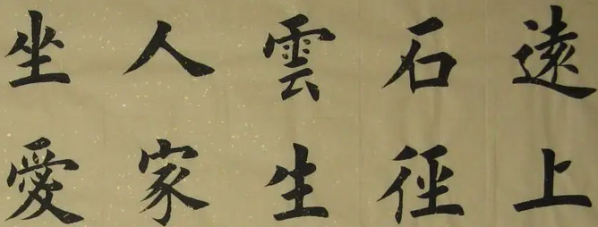 遠上
石徑
雲生
人家
坐愛